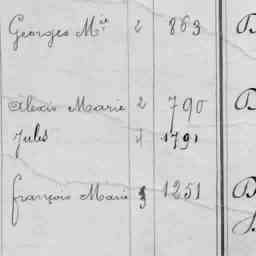 Georges Mie 2 863 B
Alexis Marie 2 790 B
Jules 4 1791
françois Marie 3 1251 B